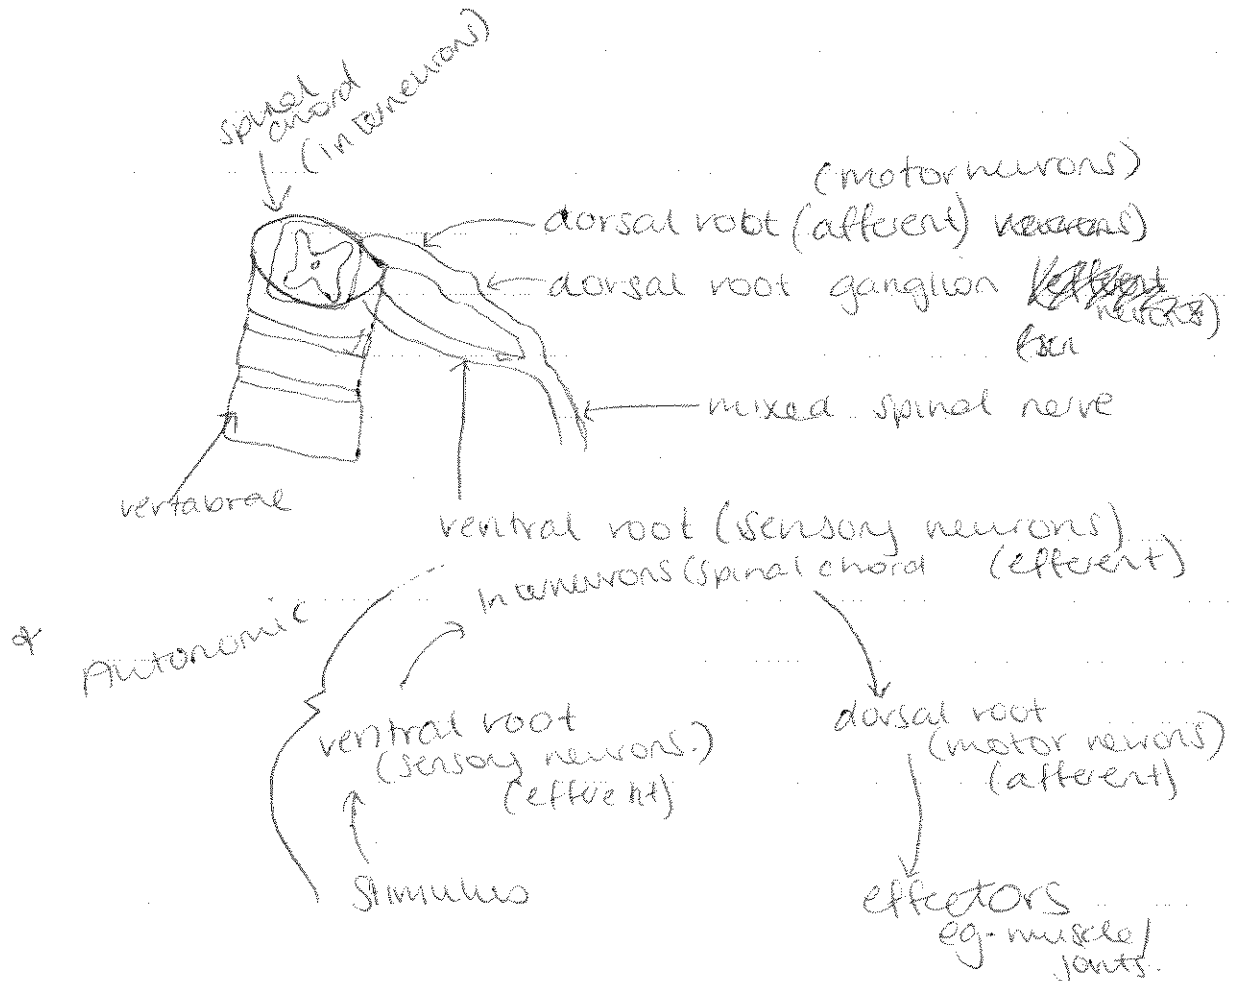 spinal
chord
(interneurons)
(motor neurons)
dorsal root (afferent) neurons)
dorsal root ganglion
mixed spinal nerve
vertabrae
ventral root (sensory neurons)
(efferent)
Interneurons (spinal chord
* Autonomic
ventral root
(sensory neurons.)
(efferent)
Stimulus
dorsal root
(motor neurons)
(afferent)
effectors
eg. muscle/
joints.